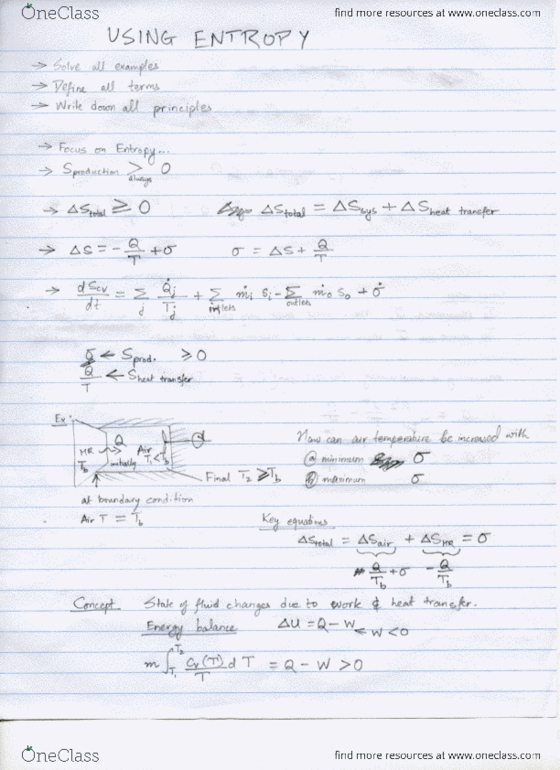 OneClass
find more resources at www.oneclass.com
USING ENTROPY
→ Solve all examples
→ Define all terms
→ Write down all principles
→ Focus on Entropy...
→ Sproduction > 0
always
→ ΔStotal ≥ 0 ΔStotal = ΔSsys + ΔSheat transfer
→ ΔS = -Q/T + σ σ = ΔS + Q/T
→ dScv/dt = Σj Q̇j/Tj + Σinlets ṁi si - Σoutlets ṁo so + σ̇
σ ← Sprod. ≥ 0
Q/T ← Sheat transfer
Ex:
HR Q Air
Tb initially T1 < Tb
Final T2 ≥ Tb
at boundary condition
Air T = Tb
How can air temperature be increased with
ⓐ minimum σ
ⓑ maximum σ
Key equations
ΔStotal = ΔSair + ΔSHR = σ
Q/Tb + σ -Q/Tb
Concept State of fluid changes due to work & heat transfer.
Energy balance ΔU = Q - W
← W < 0
m ∫T1T2 Cv(T)/T dT = Q - W > 0
OneClass
find more resources at www.oneclass.com